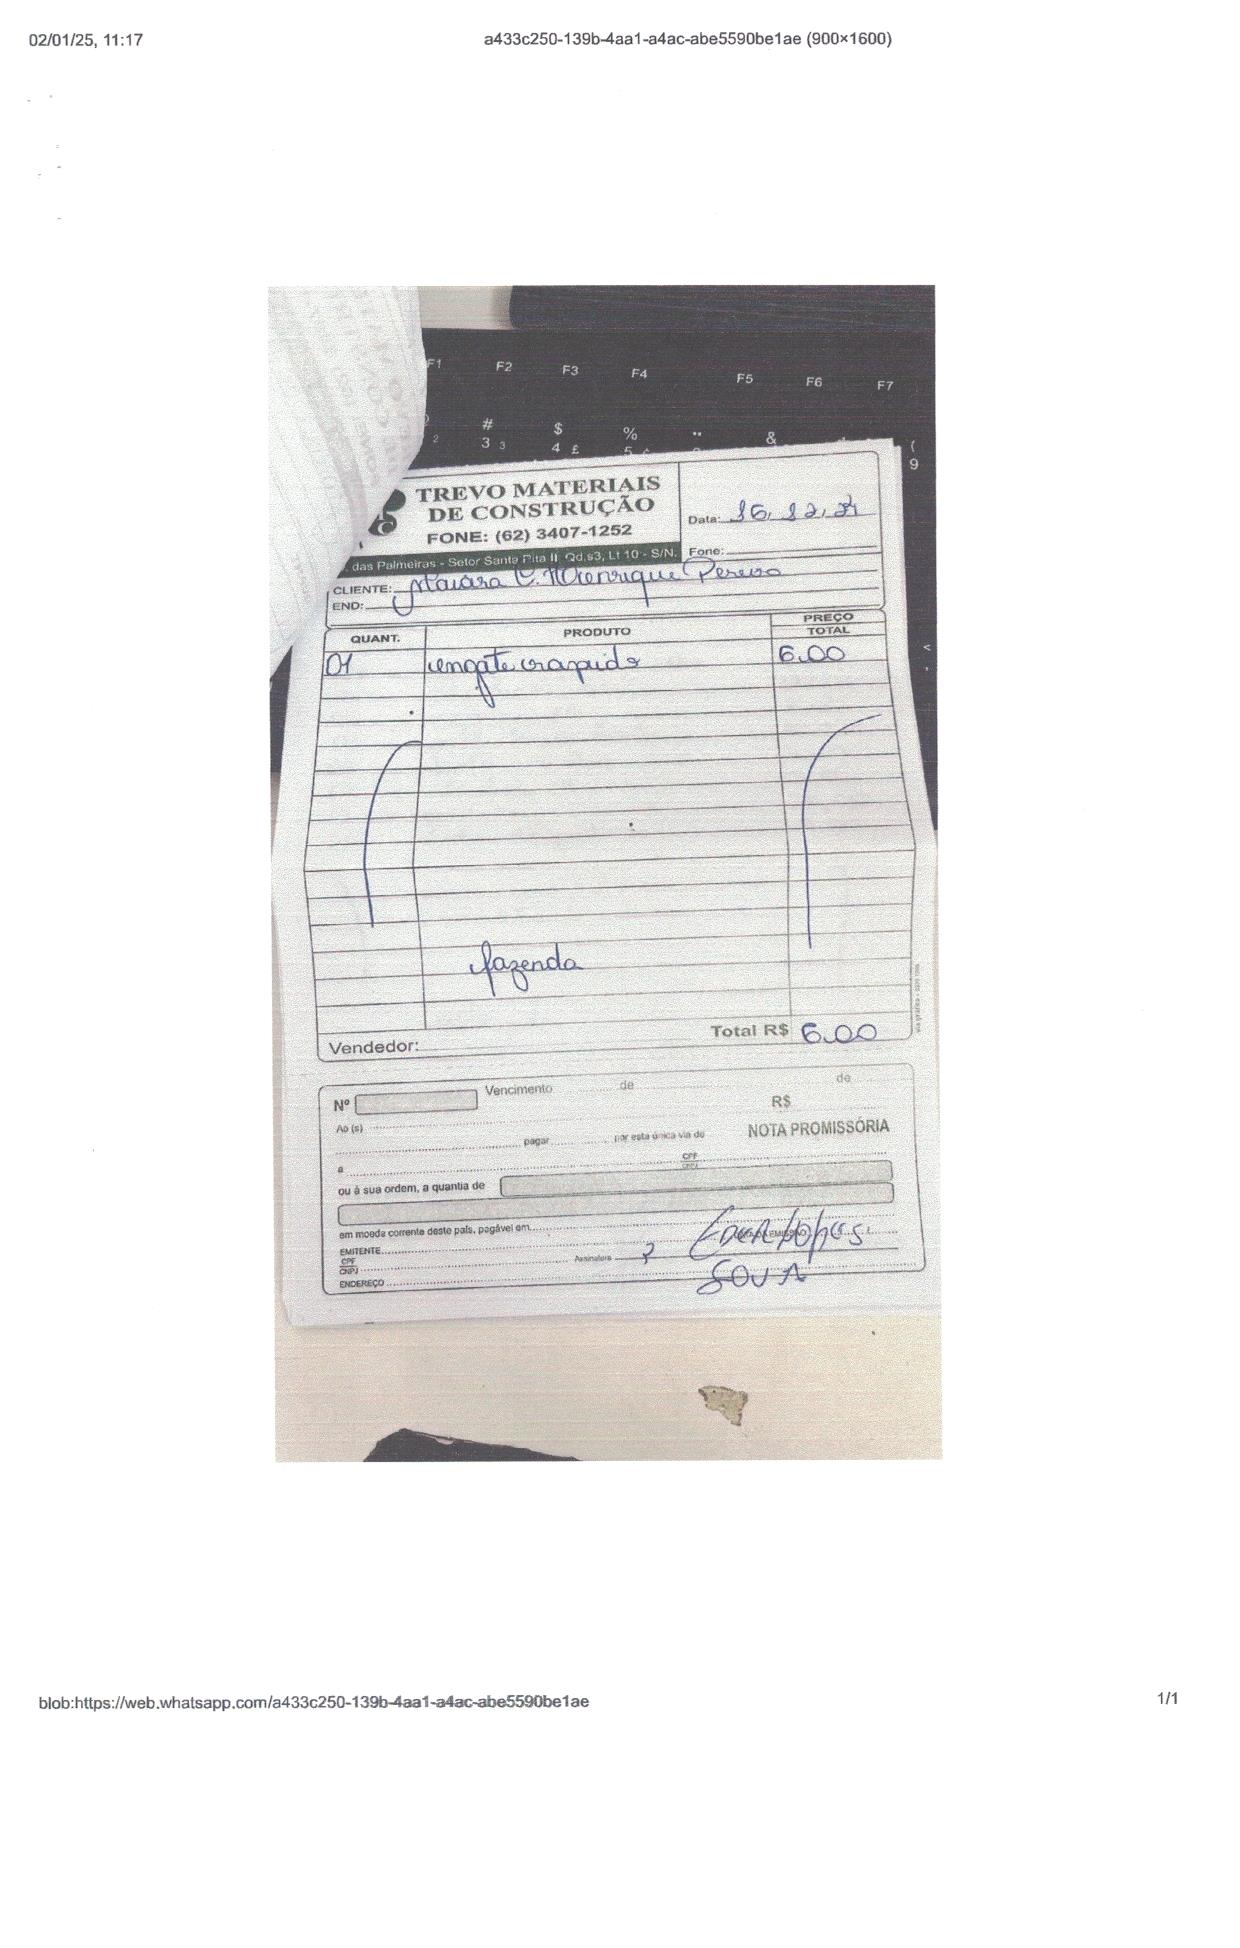 02/01/25, 11:17
a433c250-139b-4aa1-a4ac-abe5590be1ae (900×1600)
F1 F2 F3 F4 F5 F6 F7
# $ % & (
2 3 3 4 £ 5 9
TREVO MATERIAIS
DE CONSTRUÇÃO
FONE: (62) 3407-1252
Data: 16.12.24
das Palmeiras - Setor Santa Rita II Qd.s3, Lt 10 - S/N.
Fone:
CLIENTE: Maiara C. Henrique Pereira
END:
QUANT. PRODUTO PREÇO TOTAL
01 engate rapido 6.00
fazenda
Vendedor: Total R$ 6.00
Nº Vencimento de de
R$
Ao (s)
NOTA PROMISSÓRIA
pagar por esta única via de
a CPF
CNPJ
ou à sua ordem, a quantia de
em moeda corrente deste país, pagável em
EMITENTE
CPF
CNPJ
Assinatura
ENDEREÇO
blob:https://web.whatsapp.com/a433c250-139b-4aa1-a4ac-abe5590be1ae
1/1